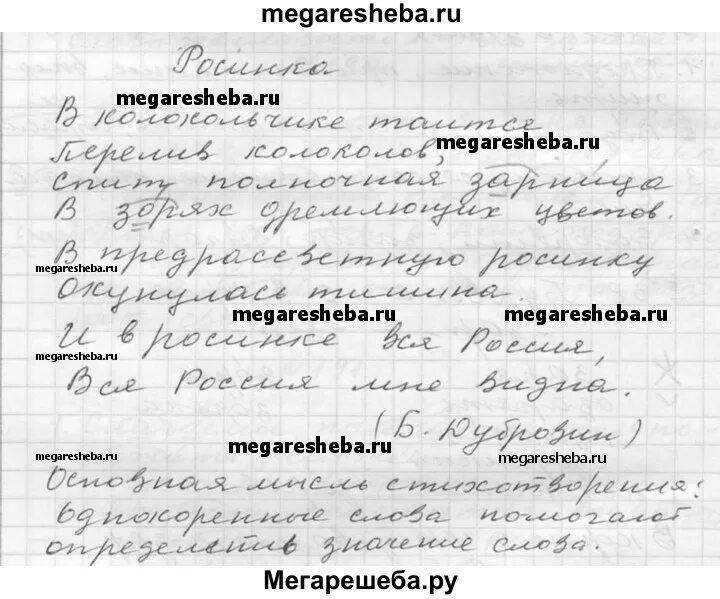 megaresheba.ru
Росинка
megaresheba.ru
В колокольчике таится
megaresheba.ru
Перелив колоколов,
Спит полночная зарница
В зорях дремлющих цветов.
В предрассветную росинку
megaresheba.ru
Окунулась тишина.
megaresheba.ru
megaresheba.ru
И в росинке вся Россия,
megaresheba.ru
Вся Россия мне видна.
(Б. Дубровин)
megaresheba.ru
megaresheba.ru
megaresheba.ru
Основная мысль стихотворения:
Однокоренные слова помогают
определить значение слова.
Мегарешеба.ру